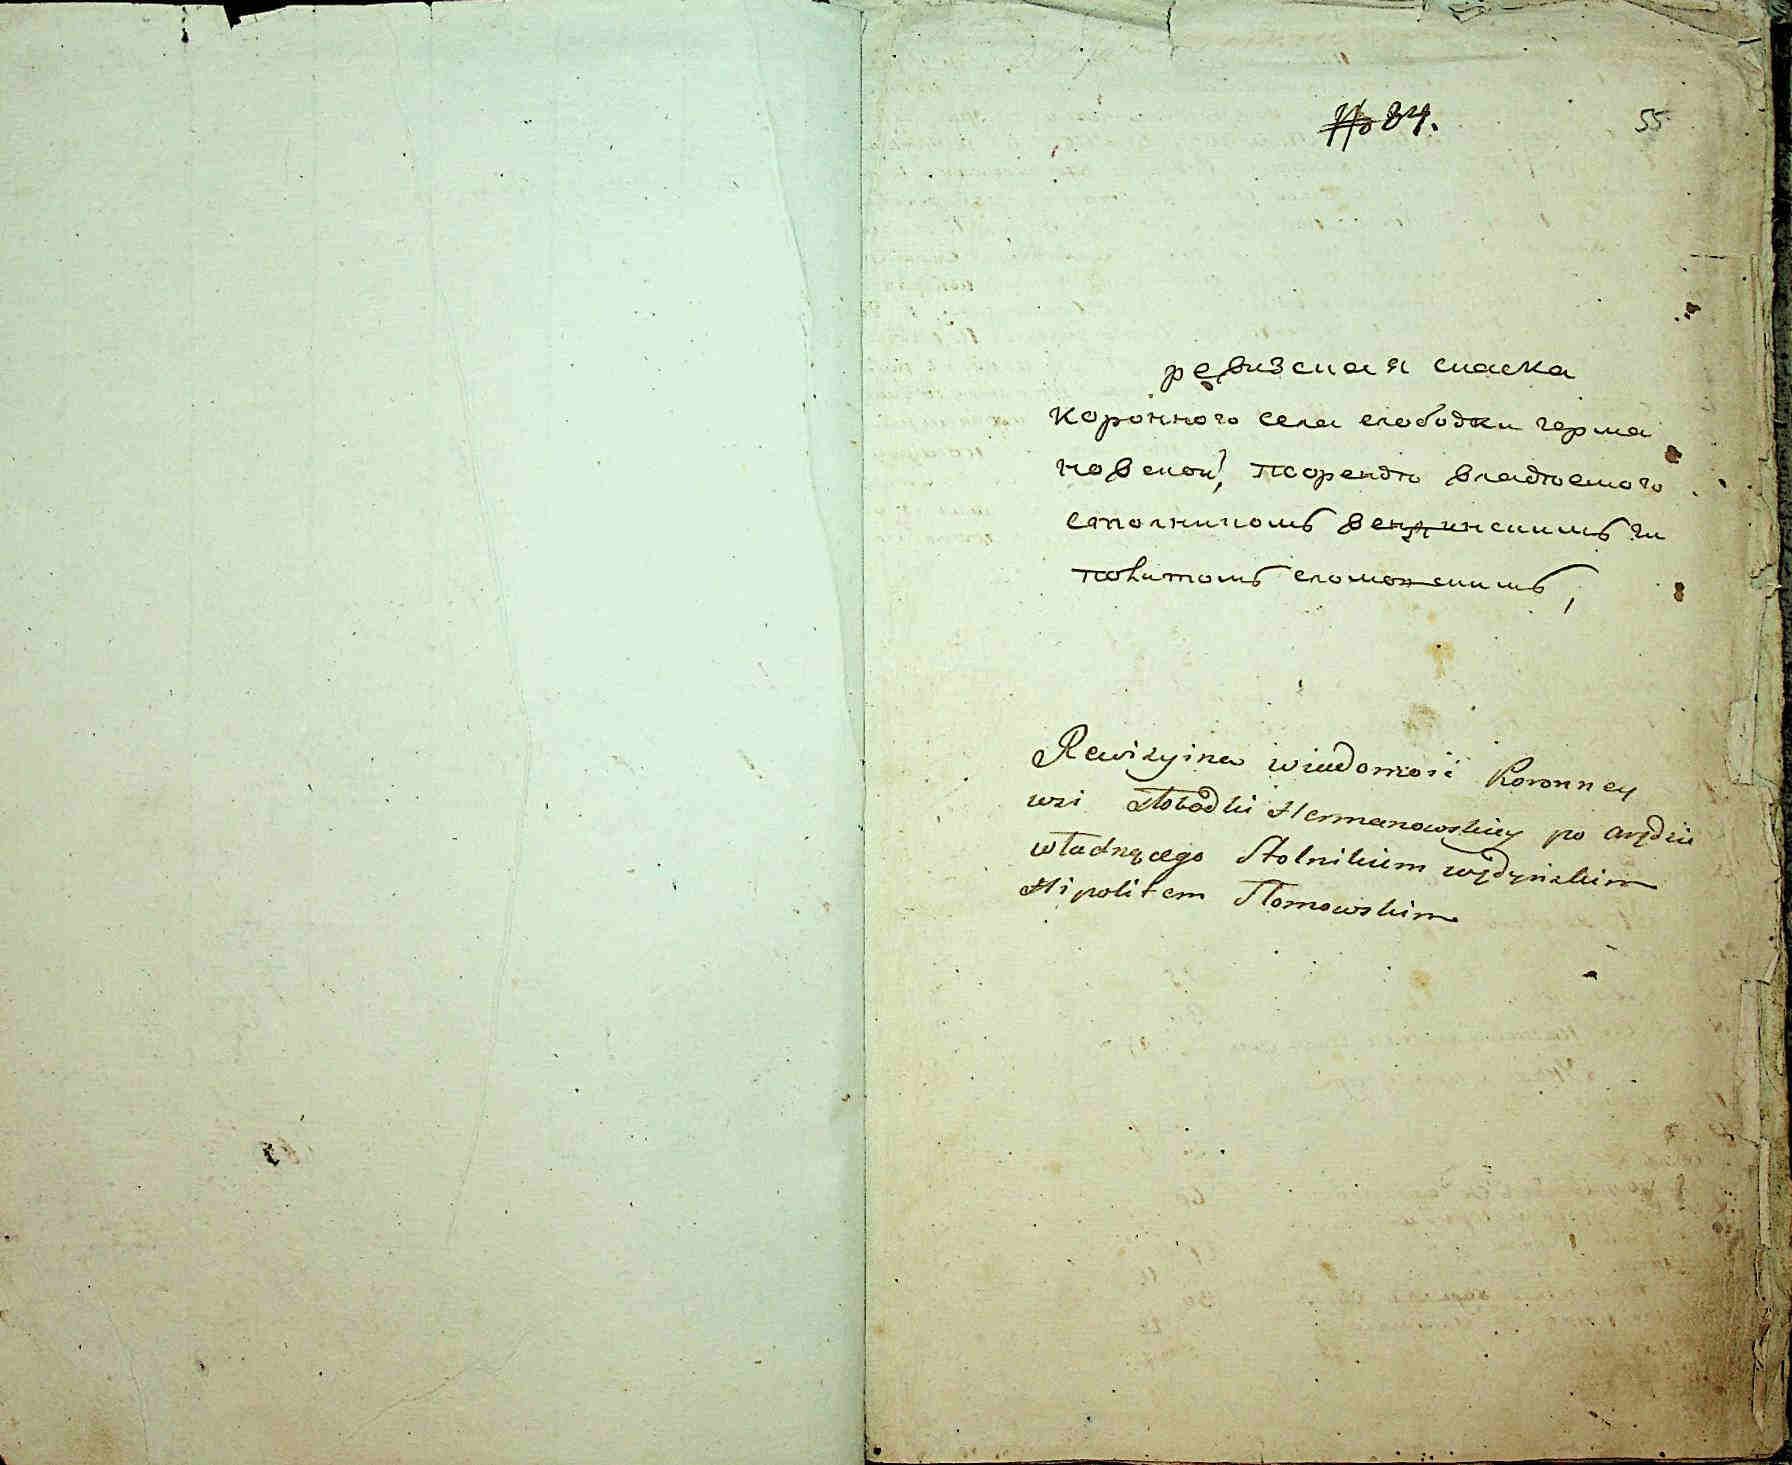 № 84.
55
ревизская скаска
коронного села слободки герма
новской, поорендѣ владѣемого
столникомъ вендинскимъ ги
политомъ
Rewizyina wiadomość Koronney
wsi Słobodki Hermanowskiey po arędzie
władnącego Stolnikiem wędyńskim
Hipolitem Słomowskim